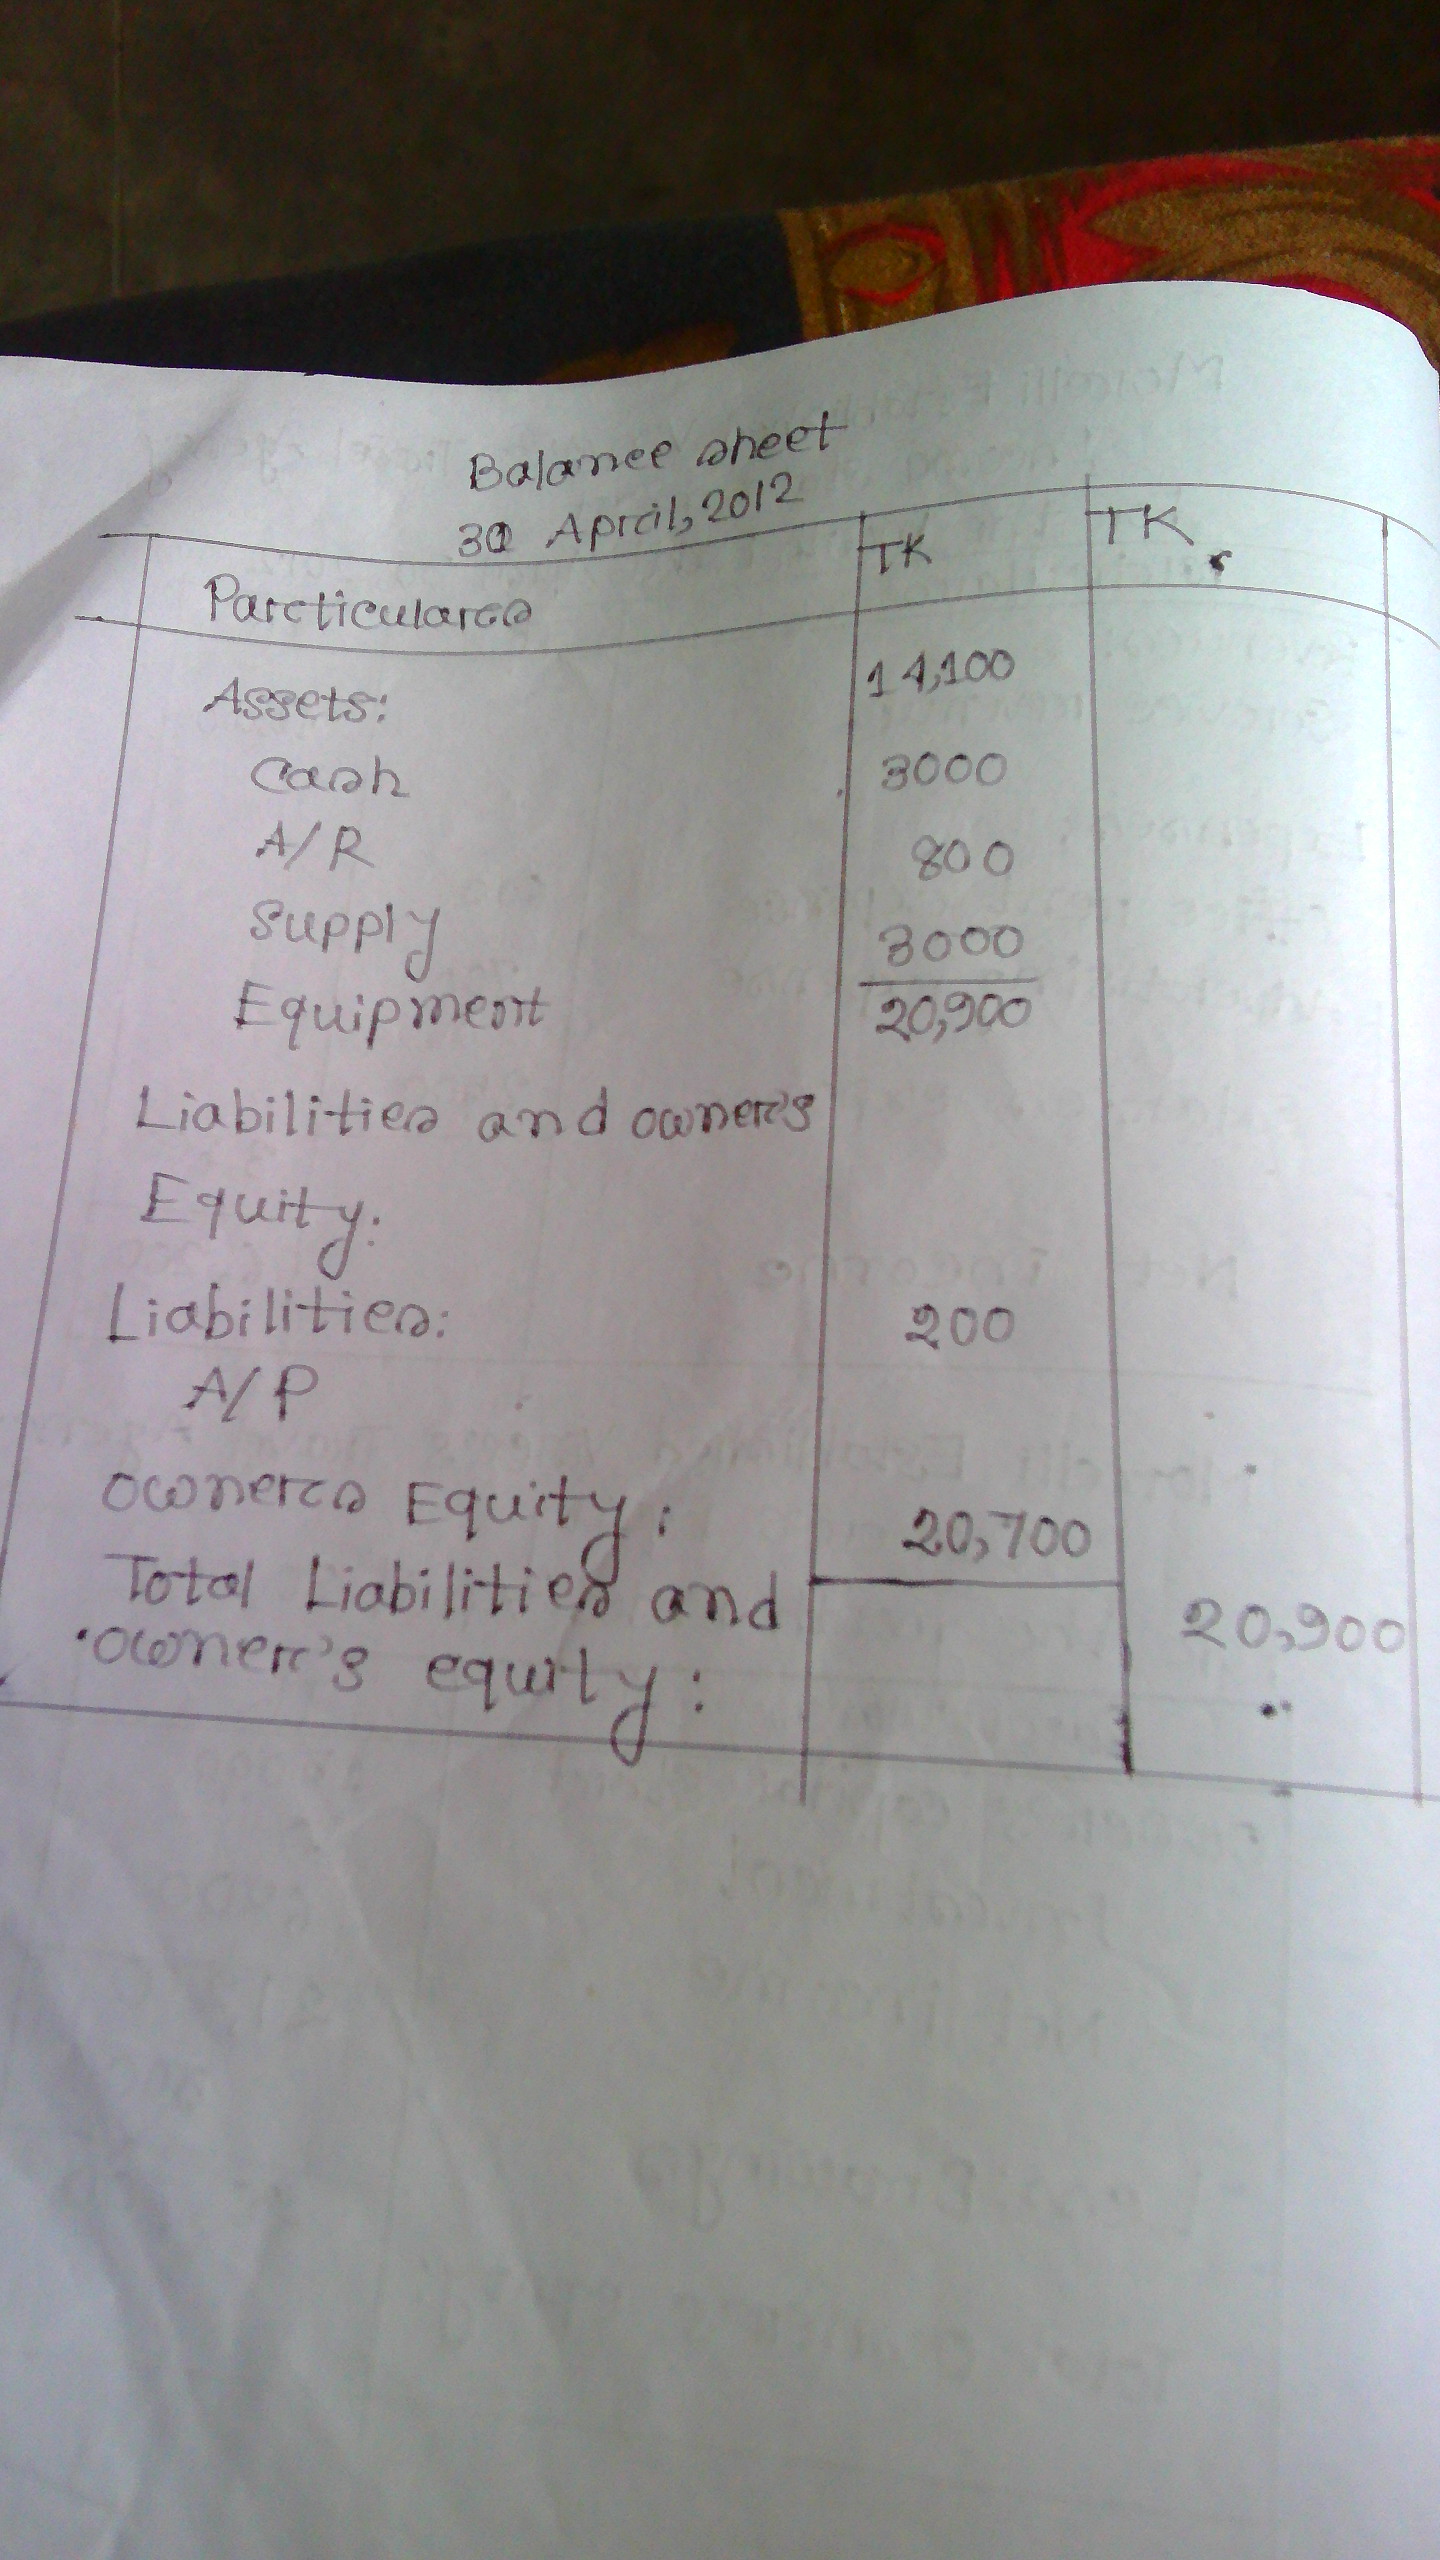 Balance sheet
30 April, 2012
Particulars TK TK.
Assets: 14,100
Cash 3000
A/R 800
Supply 3000
Equipment 20,900
Liabilities and owner's
Equity:
Liabilities: 200
A/P
owners Equity: 20,700
Total Liabilities and 20,900
owner's equity: